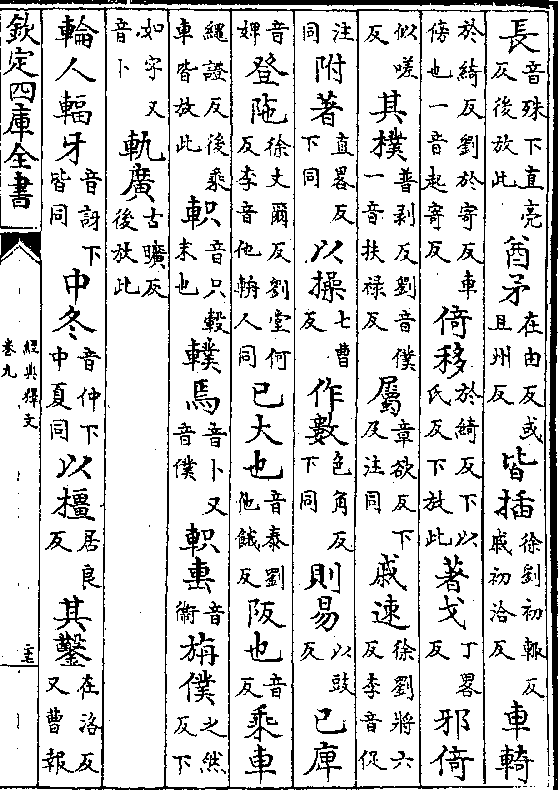 長音殊下直亮反後放此酋矛在由反或且州反皆插徐劉初輒反戚初洽反車輢
於綺反劉於寄反車傍也一音起寄反倚移於綺反下以氏反下放此著戈丁畧反邪倚
似嗟反其樸普剥反劉音僕一音扶禄反屬章欲反下及注同戚速徐劉將六反李音促
注同附著直畧反下同以操七曹反作數色角反下同則易以豉反已庳
音婢登阤徐丈爾反劉堂何反李音他輈人同已大也音泰劉他餓反阪也音反乘車
繩證反後乘車皆放此軹音只轂末也轐焉音卜又音僕軹軎音衞旃僕之然反下
如字又音卜軌廣古曠反後放此
輪人輻牙音訝下皆同中冬音仲下中夏同以橿居良反其鑿在洛反又曹報
欽定四庫全書
經典釋文
卷九